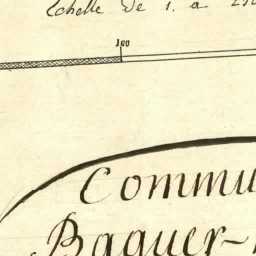 Echelle de 1. a 25
100
Commu
Baguer-